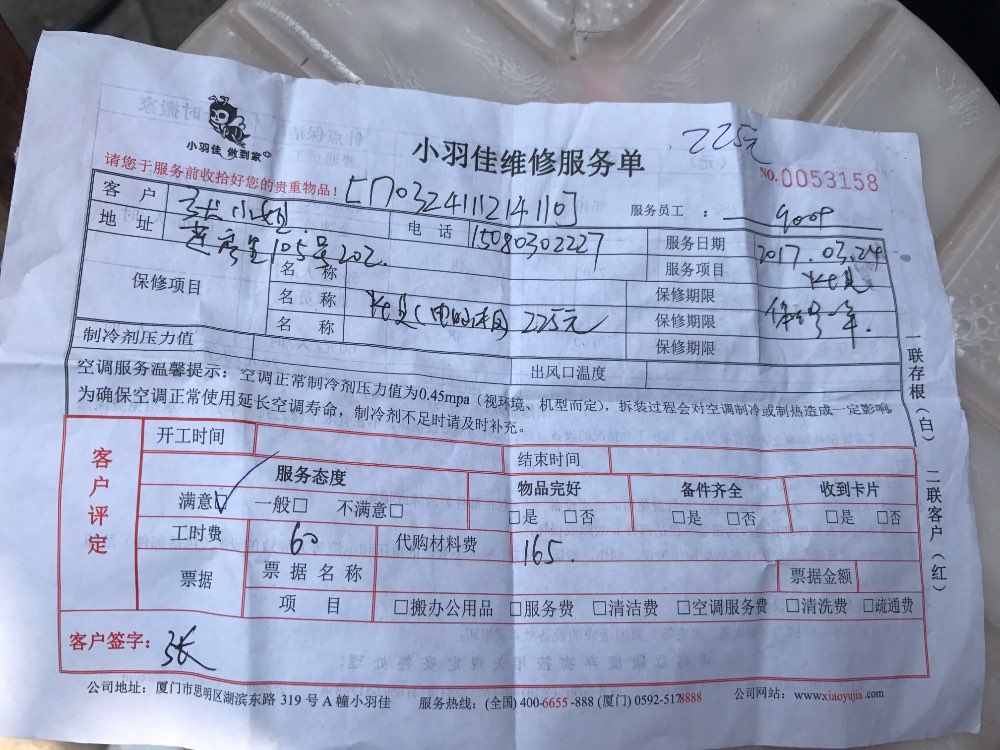 小羽佳 做到家
小羽佳维修服务单
225元
请您于服务前收拾好您的贵重物品!
NO.0053158
[1703241112141107]
服务员工 : 9009
客户 张小姐 电话 15080302227 服务日期 2017.03.24
地址 105号202 服务项目
保修项目 名称 保修期限
名称 225元 保修期限
名称 保修期限
制冷剂压力值 出风口温度
空调服务温馨提示:空调正常制冷剂压力值为0.45mpa(视环境、机型而定),拆装过程会对空调制冷或制热造成一定影响,
为确保空调正常使用延长空调寿命,制冷剂不足时请及时补充。
一联存根(白) 二联客户(红)
客户评定
开工时间 结束时间
服务态度 物品完好 备件齐全 收到卡片
满意☑ 一般□ 不满意□ □是 □否 □是 □否 □是 □否
工时费 60 代购材料费 165.
票据 票据名称 票据金额
项目 □搬办公用品 □服务费 □清洁费 □空调服务费 □清洗费 □疏通费
客户签字: 张
公司地址:厦门市思明区湖滨东路 319 号 A 幢小羽佳 服务热线:(全国) 400-6655-888 (厦门) 0592-5178888 公司网站:www.xiaoyujia.com